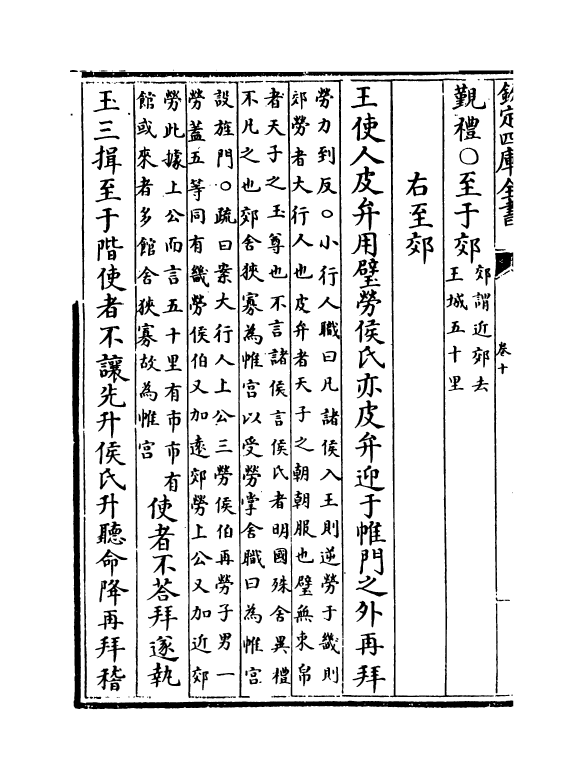 欽定四庫全書
卷十
覲禮○至于郊
郊謂近郊去
王城五十里
右至郊
王使人皮弁用璧勞侯氏亦皮弁迎于帷門之外再拜
勞力到反○小行人職曰凡諸侯入王則逆勞于畿則
郊勞者大行人也皮弁者天子之朝朝服也璧無束帛
者天子之玉尊也不言諸侯言侯氏者明國殊舍異禮
不凡之也郊舍狹寡為帷宫以受勞掌舍職曰為帷宫
設旌門○疏曰案大行人上公三勞侯伯再勞子男一
勞蓋五等同有畿勞侯伯又加逺郊勞上公又加近郊
勞此據上公而言五十里有市市有
館或來者多館舍狹寡故為帷宫
使者不荅拜遂執
玉三揖至于階使者不讓先升侯氏升聽命降再拜稽